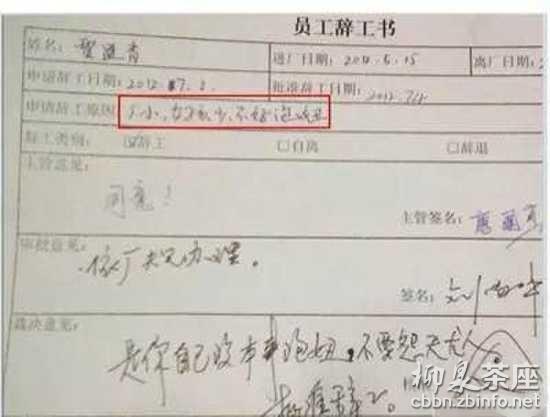 员工辞工书
姓名: 进厂日期: 2012.6.15 离厂日期:
申请辞工日期: 2012.7.2. 批准辞工日期: 2012.7.4
申请辞工原因: 厂小,女孩少,不好泡妞
辞工类别: ☑辞工 □自离 □辞退
主管意见:
同意!
主管签名:
审核意见:
依厂规办理。
签名:
裁决意见:
是你自己没本事泡妞,不要怨天尤人
批准辞工。
柳泉茶座
cbbn.zbinfo.net